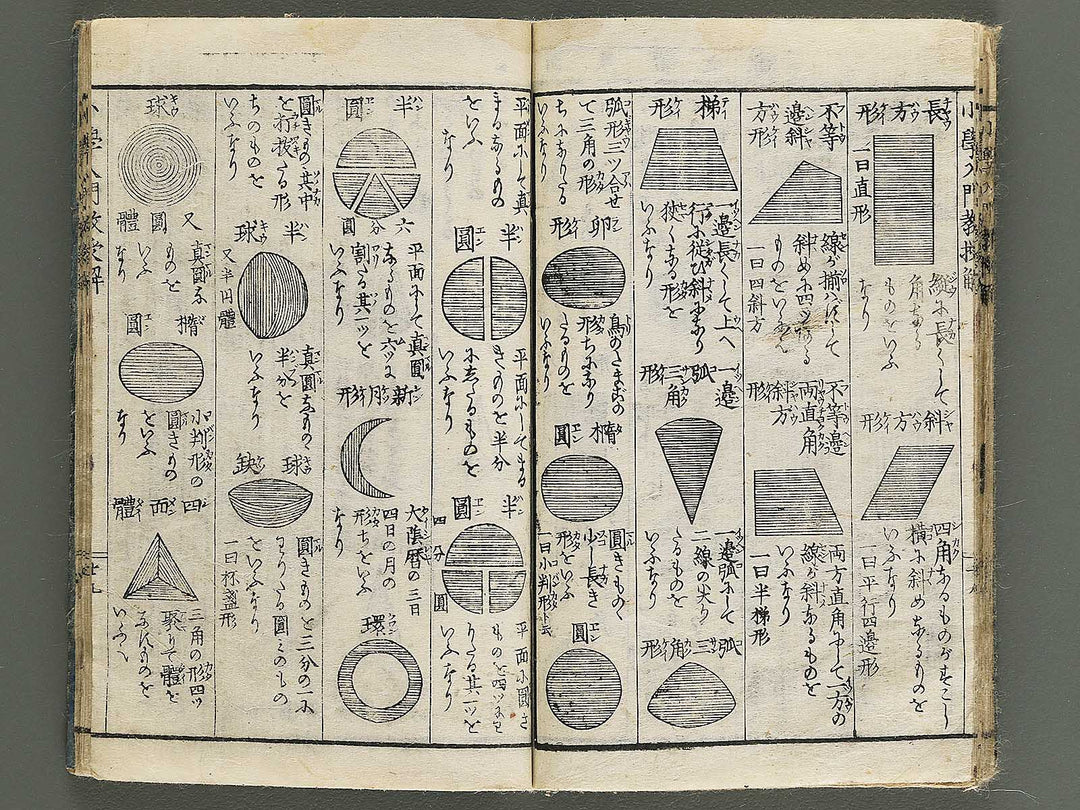 長方形
一曰直形
縦に長くして
角なる
ものをいふ
なり
斜方形
四角なるものゝ
横に斜めなるものを
いふなり
一曰平行四邊形
不等
邊斜
方形
線が揃はずして
斜めに四ツなる
ものをいふ
一曰四斜方
不等邊
両直角
斜方
形
両方直角にして一方の
線が斜なるものを
いふなり
一曰半梯形
梯形
一邊長くして上へ
行に従ひ斜になり
狭くなる形を
いふなり
一邊
弧三角
形
一邊弧にして
二線の尖り
たるものを
いふなり
三弧
三角
形
弧形三ツ合せ
て三角の形
ちになりたる
をいふなり
卵形
鳥のたまごの
形ちになり
たるものを
いふなり
楕圓
圓きものゝ
少し長き
形をいふ
一曰小判形ト云
圓
平面にして真
まるなるもの
をいふ
なり
半圓
平面にしてまる
きものを半分
にしたるものを
いふなり
半圓
四分圓
平面に圓き
ものを四ツにわ
りたる其一ツを
いふなり
半圓
六分圓
平面にて真圓
なるものを六ツに
割たる其一ツを
いふなり
新月形
大陰暦の三日
四日の月の
形ちをいふ
なり
環
圓きものゝ其中
を打抜たる形
ちのものを
いふなり
半球
又半円體
真圓なるものゝ
半分を
いふなり
球缺
圓きものを三分の一に
わりたる圓みのもの
をいふなり
一曰杯盞形
球
又圓體
真圓な
ものを
いふ
なり
楕圓
小判形の
圓きもの
をいふ
なり
四面體
三角の形四ツ
聚りて體を
なすものを
いふ